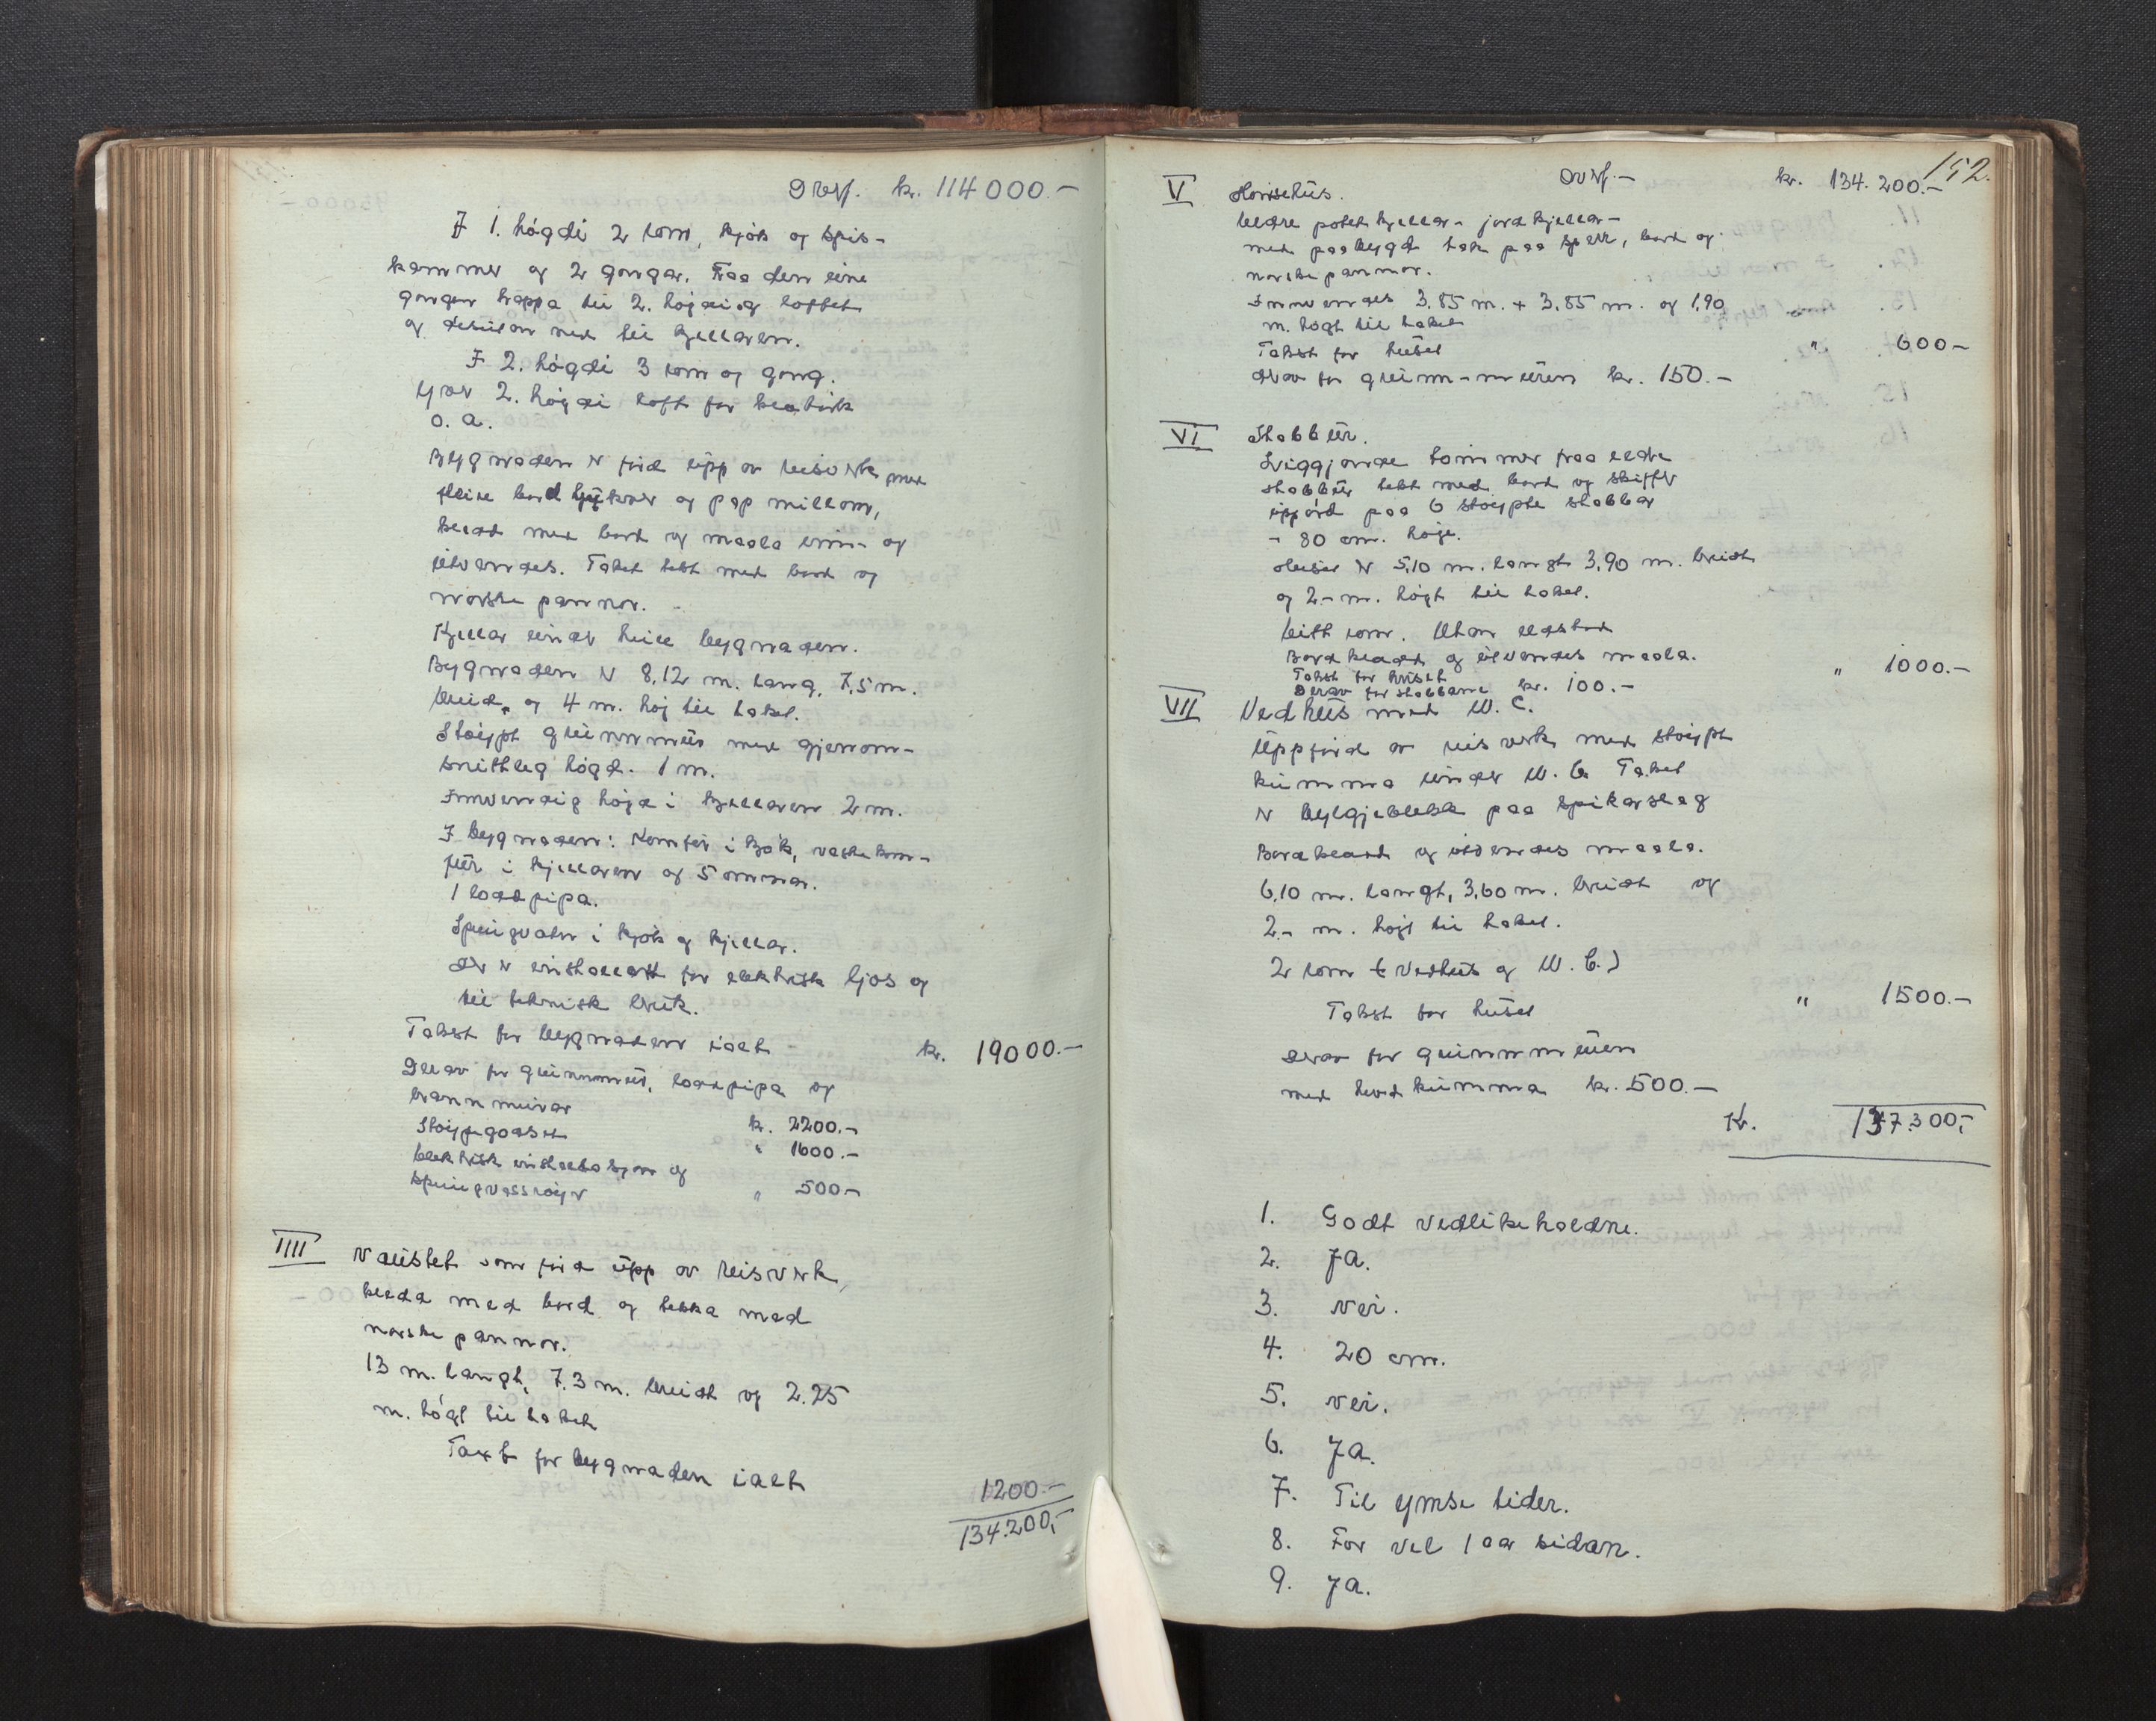 Overf. kr. 114000.-
I 1. högdi 2 rom, kjök og spis-
kammer og 2 gongar. Fraa den eine
gongen trappa til 2. högdi og loftet
og desutan ned til kjellaren.
I 2. högdi 3 rom og gong.
Yver 2. högdi loft for
o. a.
Bygnaden er förd upp av reisverk med
fleire bord tjukner og pap millom,
klædd med bord og maala inn- og
utvendes. Taket tekt med bord og
norske pannor.
Kjellar under heile bygnaden.
Bygnaden er 8,12 m. lang, 7,5 m.
breid, og 4 m. høg til taket.
Stöypt grunnmur med gjenom-
snittleg högd. 1 m.
Innvendig högd i kjellaren 2 m.
I bygnaden: Komfur i kjök, vaskekom-
fur i kjellaren og 5 omnar.
1 loddpipa.
Springvatn i kjök og kjellar.
Det er installert for elektrisk ljos og
til teknisk bruk.
Takst for bygnaden ialt - kr. 19000.-
Derav for grunnmur, loddpipa og
brannmurar kr. 2200.-
Stöypegodset " 1600.-
Elektrisk installasjon og
springvassröyr " 500.-
IIII Naustet som förd upp av reisverk,
klædd med bord og tekka med
norske pannor.
13 m. langt, 7.3 m. breidt og 2.25
m. högt til taket
Taxt for bygnaden ialt
1200.-
134.200,-
152.
Overf.- kr. 134.200.-
V Hönsehus.
Eldre potetkjellar - jordkjellar -
med paabygd tak paa sperr, bord og
norske pannor.
Innvendes 3.85 m. + 3.85 m. og 1,90
m. högt til taket
Takst for huset " 600-
Derav for grunn-muren kr. 150.-
VI Stabbur.
Liggjande tommer fraa eldre
stabbur tekt med bord og skiffer
uppförd paa 6 stöypte stabbar
- 80 cm. höge.
Huset er 5,10 m. langt 3,90 m. breidt
og 2- m. högt til taket.
Eitt rom. Utan eldstad
Bordklædt og utvendes maala.
Takst for huset " 1000.-
Derav for stabbane kr. 100.-
VII Vedhus med W. C.
Uppförd av reisverk med stöypt
kumma under W. C. Taket
er bylgjeblekk paa spikarslag
Bordklædt og utvendes maala.
6,10 m. langt, 3,60 m. breidt og
2.- m. högt til taket.
2 rom (Vedhus og W. C.)
Takst for huset " 1500.-
Derav for grunnmuren
med kumma kr. 500.-
Kr. 137.300,-
1. Godt vedlikeholdne.
2. Ja.
3. Nei.
4. 20 cm.
5. Nei.
6. Ja.
7. Til ymse tider.
8. For vel 1 aar sidan.
9. Ja.